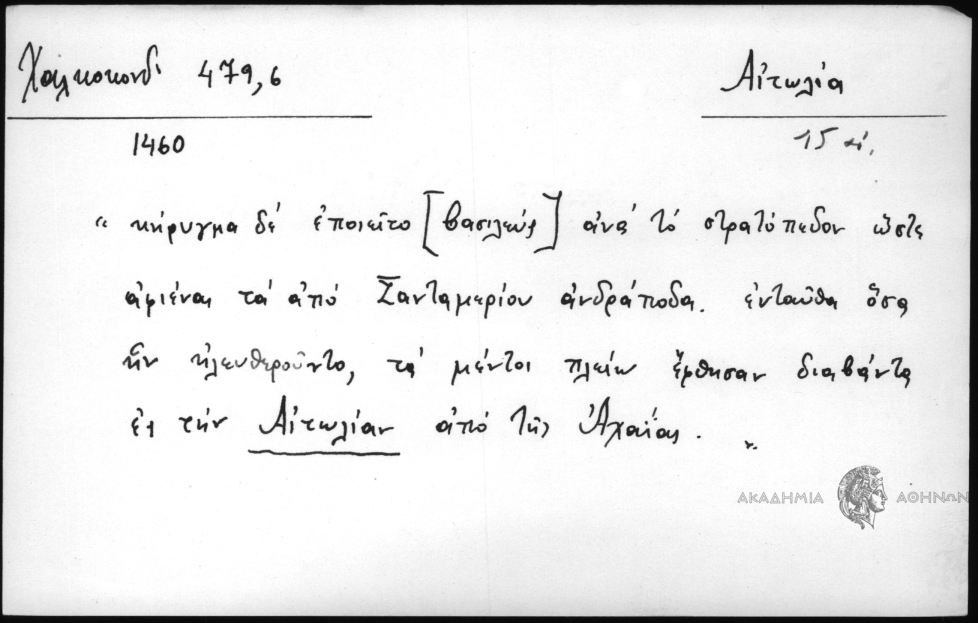 Χαλκοκονδ. 479,6
Αἰτωλία
1460
15 αἰ.
“ κήρυγμα δέ ἐποιεῖτο [βασιλεύς] ἀνά τό στρατόπεδον ὥστε
ἀφιέναι τά ἀπό Σανταμερίου ἀνδράποδα. ἐνταῦθα ὅσα
ἦν ἠλευθεροῦντο, τά μέντοι πλείω ἔφθησαν διαβάντα
ἐς τήν Αἰτωλίαν ἀπό τῆς Ἀχαΐας. „
ΑΚΑΔΗΜΙΑ ΑΘΗΝΩΝ